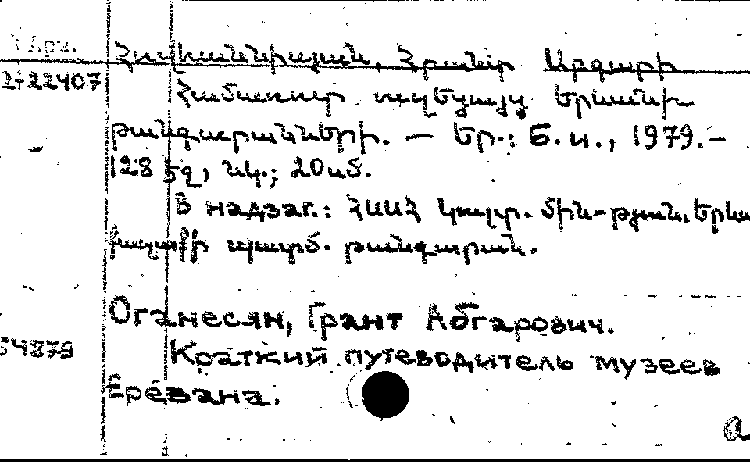 Հովհաննիսյան, Հրանտ Աբգարի
2-22407
Համառոտ ուղեցույց Երևանի
թանգարանների. — Եր.: Բ. и., 1979.—
128 էջ, նկ.; 20սմ.
В надзаг.: ՀՍՍՀ կուլտ. մին-թյուն, Երև
քաղաքի պատմ. թանգարան.
Оганесян, Грант Абгарович.
54879 Краткий путеводитель музеев
Еревана.
а